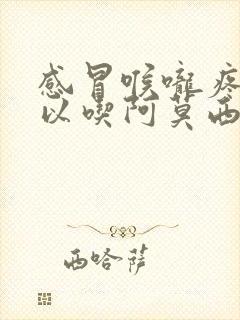 感冒喉嚨疼
以喫阿莫西
西哈萨